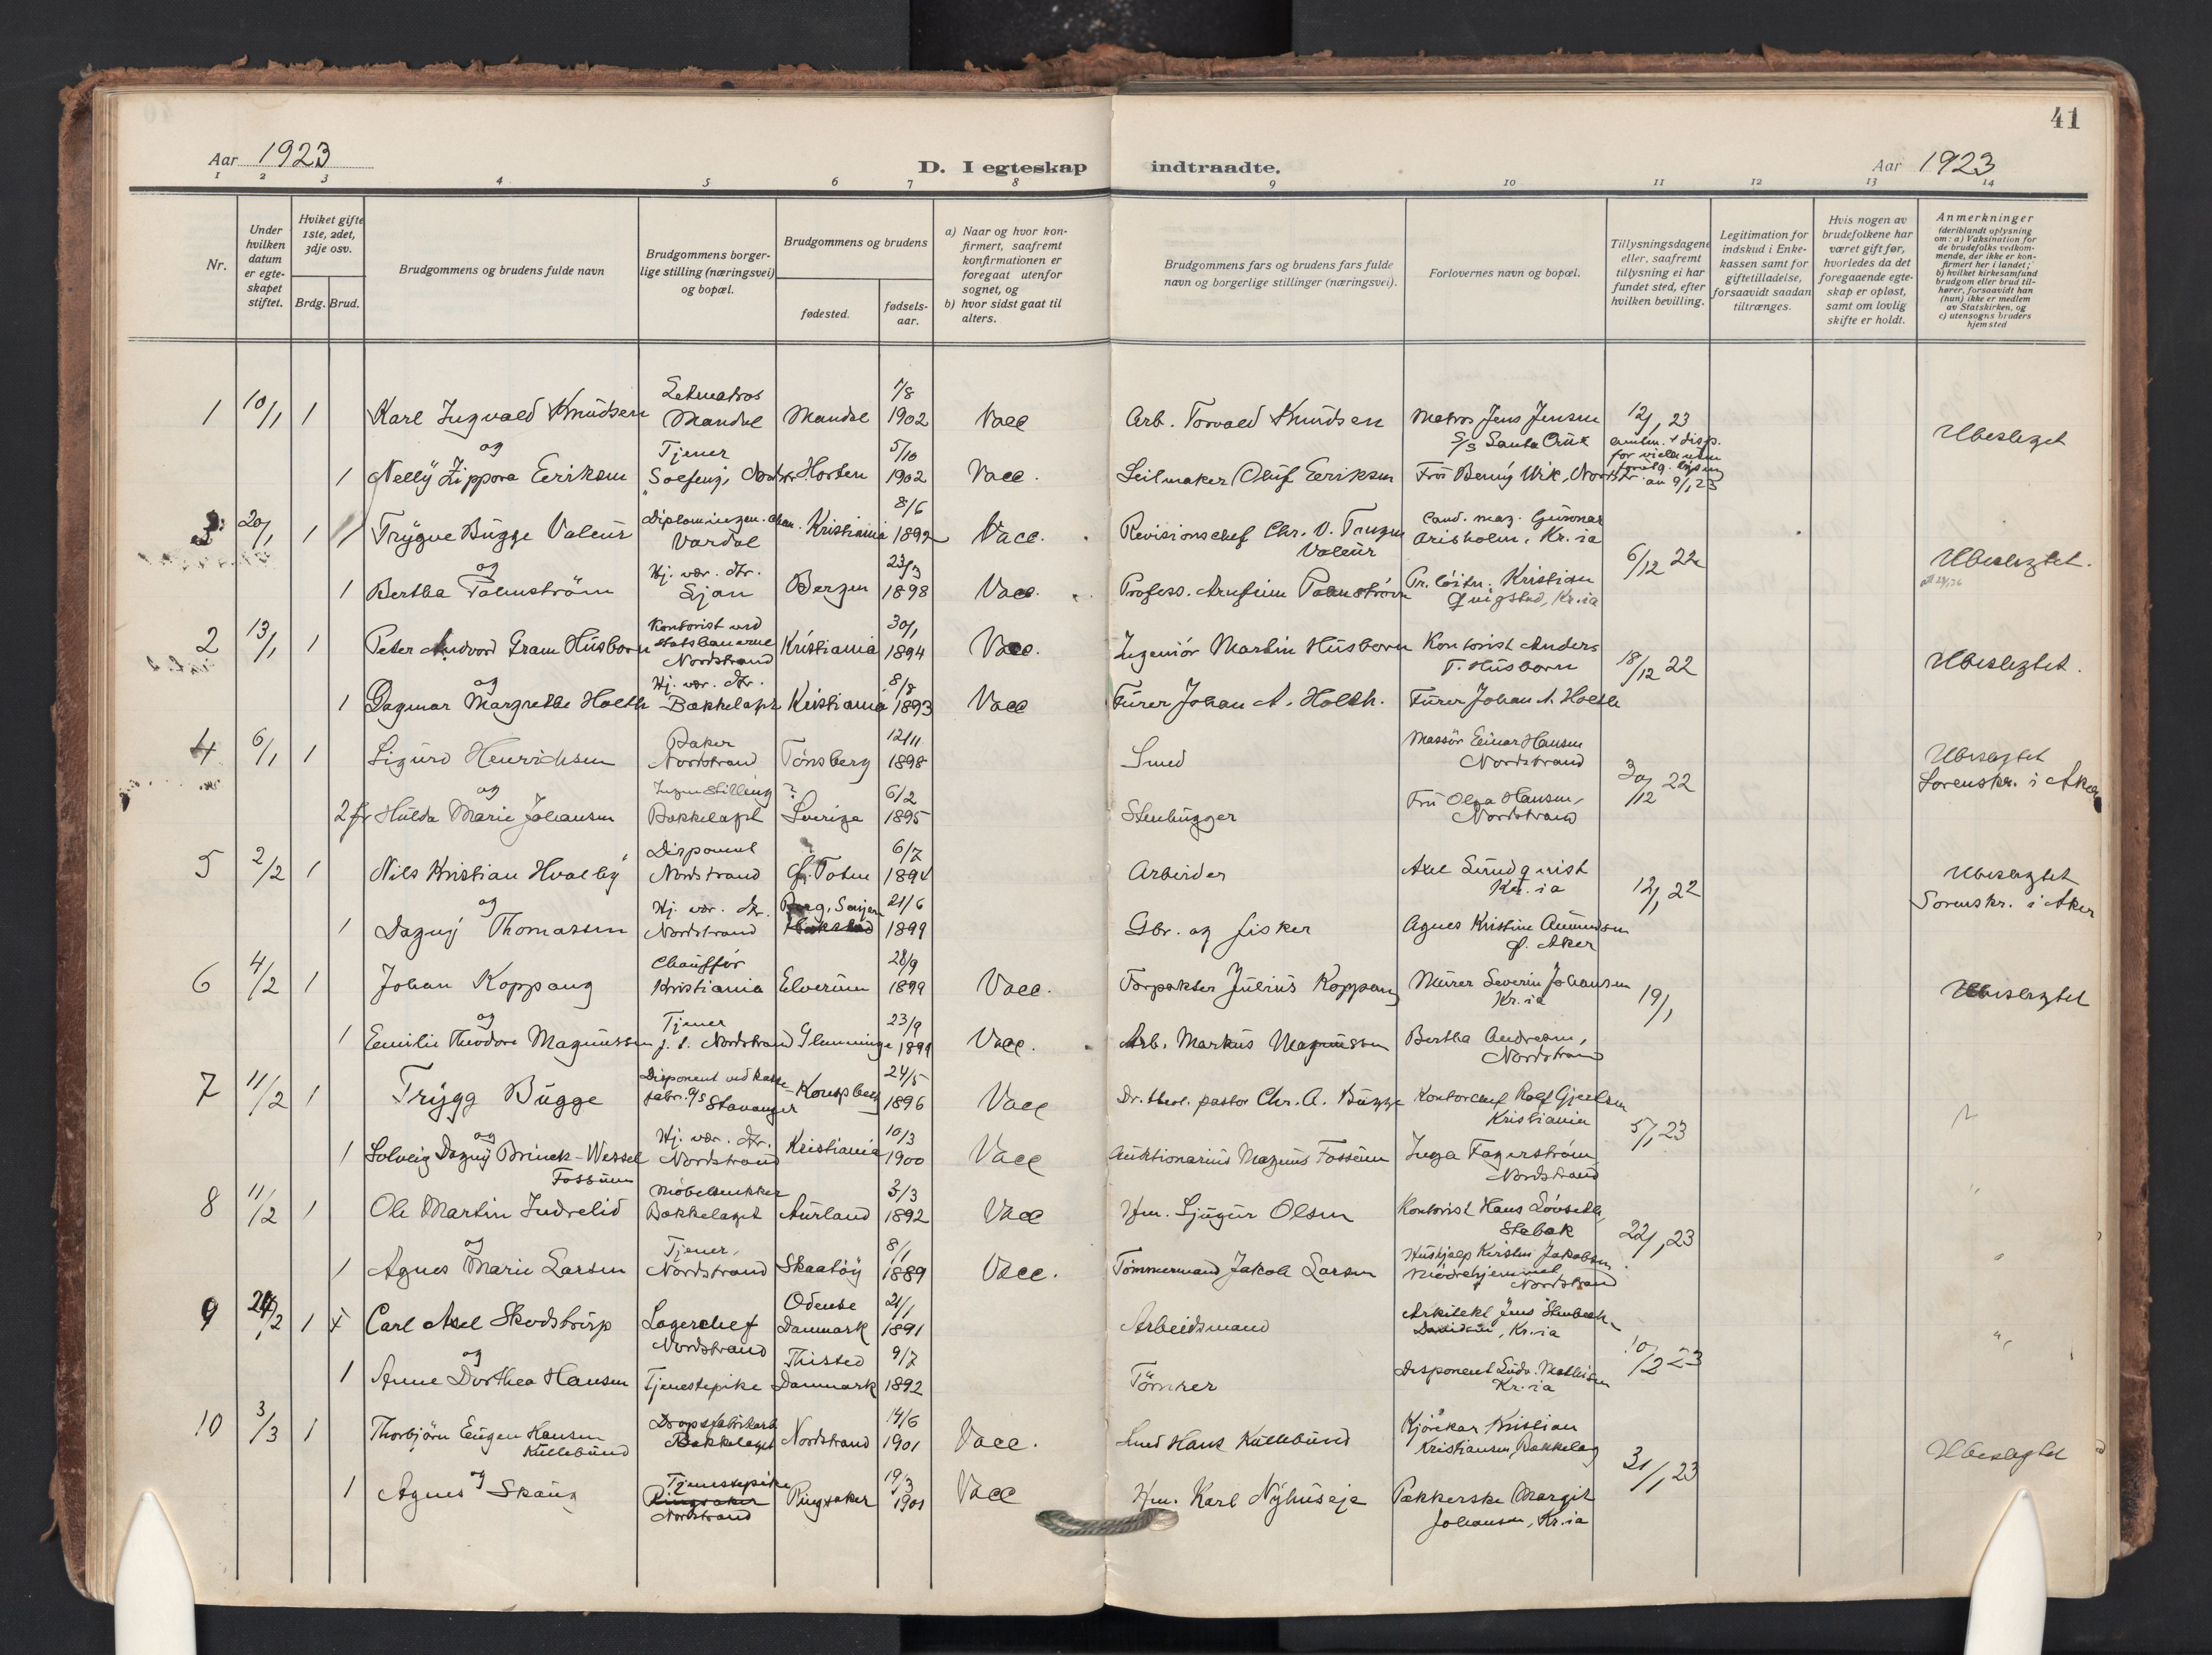 41
Aar 1923
D. I egteskap indtraadte.
Aar 1923
1 2 3 4 5 6 7 8 9 10 11 12 13 14
Nr.
Under hvilken datum er egteskapet stiftet.
Hviket gifte 1ste, 2det, 3dje osv.
Brdg. Brud.
Brudgommens og brudens fulde navn
Brudgommens borgerlige stilling (næringsvei) og bopæl.
Brudgommens og brudens
fødested.
fødselsaar.
a) Naar og hvor konfirmert, saafremt konfirmationen er foregaat utenfor sognet, og
b) hvor sidst gaat til alters.
Brudgommens fars og brudens fars fulde navn og borgerlige stillinger (næringsvei).
Forlovernes navn og bopæl.
Tillysningsdagene eller, saafremt tillysning ei har fundet sted, efter hvilken bevilling.
Legitimation for indskud i Enkekassen samt for giftetilladelse, forsaavidt saadan tiltrænges.
Hvis nogen av brudefolkene har været gift før, hvorledes da det foregaaende egteskap er opløst, samt om lovlig skifte er holdt.
Anmerkninger
(deriblandt oplysning om: a) Vaksination for de brudefolks vedkommende, der ikke er konfirmert her i landet; b) hvilket kirkesamfund brudgom eller brud tilhører, forsaavidt han (hun) ikke er medlem av Statskirken, og c) utensogns bruders hjemsted
1 10/1 1 Karl Ingvald Knudsen Letmatros Mandal Mandal 7/8 1902 Vacc Arb. Torvald Knudsen Matros Jens Jensen S/S Santa Cruz 12/1 23 Ubeslegtet
og
1 Nelly Zippora Eeriksen Tjener Solfeng, Nordstr. Horten 5/10 1902 Vacc. Seilmaker Oluf Eeriksen Frü Berny Wik, Nordstr.
3 20/1 1 Trygve Bugge Valeur Vardal Kristiania 8/6 1892 Vacc. Revisionschef Chr. V. Valeur Cand. mag. Gunnar Arisholm, Kr.ia 6/12 22 Ubeslegtet.
og
1 Bertha Palmström Hj. vær. dtr. Ljan Bergen 23/3 1898 Vacc. Profess. Arnfinn Palmström Pr. löitn. Kristian Qvigstad, Kr.ia
2 13/1 1 Peter Andvord Gram Husborn Kontorist ved statsbanerne Nordstrand Kristiania 30/1 1894 Vacc. Ingeniör Martin Husborn Kontorist Anders T. Husborn 18/12 22 Ubeslegtet.
og
1 Dagmar Margrethe Holth Hj. vær. dtr. Bækkelaget Kristiania 8/8 1893 Vacc Furer Johan A. Holth. Furer Johan A. Holth
4 6/1 1 Sigurd Henrichsen Baker Nordstrand Tønsberg 12/11 1898 Smed Massör Einar Hansen Nordstrand 30/12 22 Ubeslegtet Sorenskr. i Aker
og
2 fr Hulda Marie Johansen Ingen stilling Bækkelaget ? Sverige 6/2 1895 Stenhugger Frü Olga Hansen, Nordstrand
5 2/2 1 Nils Kristian Hvalby Disponent Nordstrand Ø. Toten 6/7 1894 Arbeider Axel Lundqvist Kr.ia 12/1 22 Ubeslegtet Sorenskr. i Aker
og
1 Dagny Thomassen Hj. vær. dtr. Nordstrand 21/6 1899 Gbr. og fisker Agnes Kristine Amundsen Ø. Aker
6 4/2 1 Johan Koppang Chauffør Kristiania Elverum 28/9 1899 Vacc. Forpakter Julius Koppang Murer Severin Johansen Kr.ia 19/1 Ubeslegtet
og
1 Emilie Theodora Magnussen Tjener p. t. Nordstrand Glemminge 23/9 1899 Vacc. Arb. Markus Magnussen Bertha Andresen, Nordstrand
7 11/2 1 Trygg Bugge Disponent ved kassefabr. A/S Stavanger Kongsberg 24/5 1896 Vacc Dr. theol. pastor Chr. A. Bugge Kontorchef Rolf Gjertsen Kristiania 5/1 23 "
og
1 Solveig Dagny Brinck-Wessel Fossum Hj. vær. dtr. Nordstrand Kristiania 10/3 1900 Vacc Auktionarius Magnus Fossum Inga Fagerström Nordstrand
8 11/2 1 Ole Martin Indrelid Møbelsnekker Bækkelaget Aurland 3/3 1892 Vacc Gm. Sjugur Olsen Kontorist Hans Løvseth, Stabæk 22/1 23 "
og
1 Agnes Marie Larsen Tjener, Nordstrand Skaatöy 8/1 1889 Vacc. Tømmermand Jakob Larsen Hushjælp Kirsten Jakobsen Mødrehjemmet Nordstrand "
9 24/2 1 Carl Axel Skodstrup Lagerchef Nordstrand Odense Danmark 21/1 1891 Arbeidsmand Arkitekt Jens Stenbech Davidsen, Kr.ia 10/2 23 "
og
1 Anne Dorthea Hansen Tjenestepike Thisted Danmark 9/7 1892 Tømrer Disponent Ludv. Mathisen Kr.ia
10 3/3 1 Thorbjørn Eugen Hansen Kullebund Dropsfabrikarb. Bækkelaget Nordstrand 14/6 1901 Vacc. Smed Hans Kullebund Kjörekar Kristian Kristiansen, Bækkelag 31/1 23 Ubeslegtet
og
1 Agnes Skaug Tjenestepike Ringsaker Nordstrand Ringsaker 19/3 1901 Vacc Gm. Karl Nyhuseje Pakkerske Margit Johansen, Kr.ia